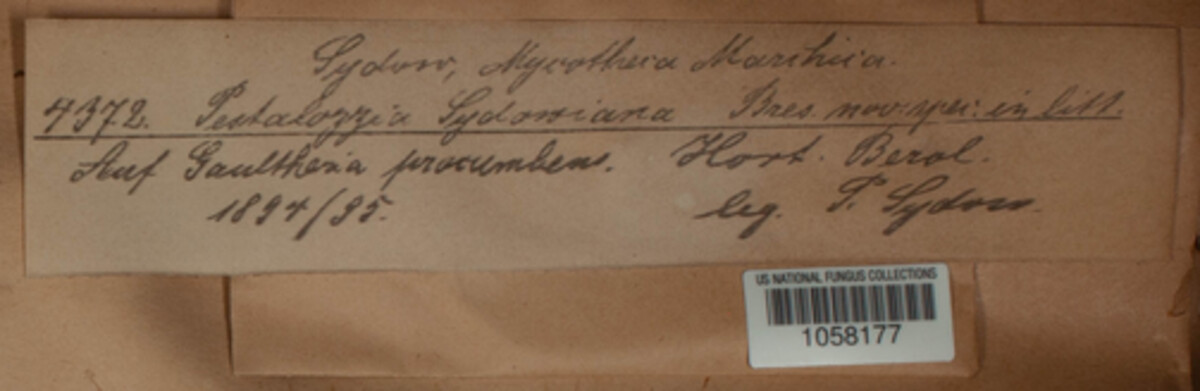 Sydow, Mycotheca Marchica.
4372. Pestalozzia Sydowiana Bres. nov. spec. in litt.
Auf Gaultheria procumbens. Hort. Berol.
1894/95. leg. P. Sydow.
US NATIONAL FUNGUS COLLECTIONS
1058177